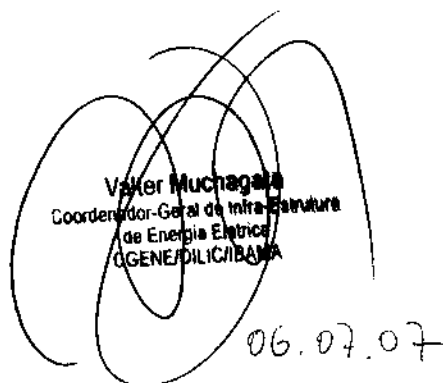 Valter Muchagata
Coordenador-Geral de Infra-Estrutura
de Energia Elétrica
CGENE/DILIC/IBAMA
06.07.07